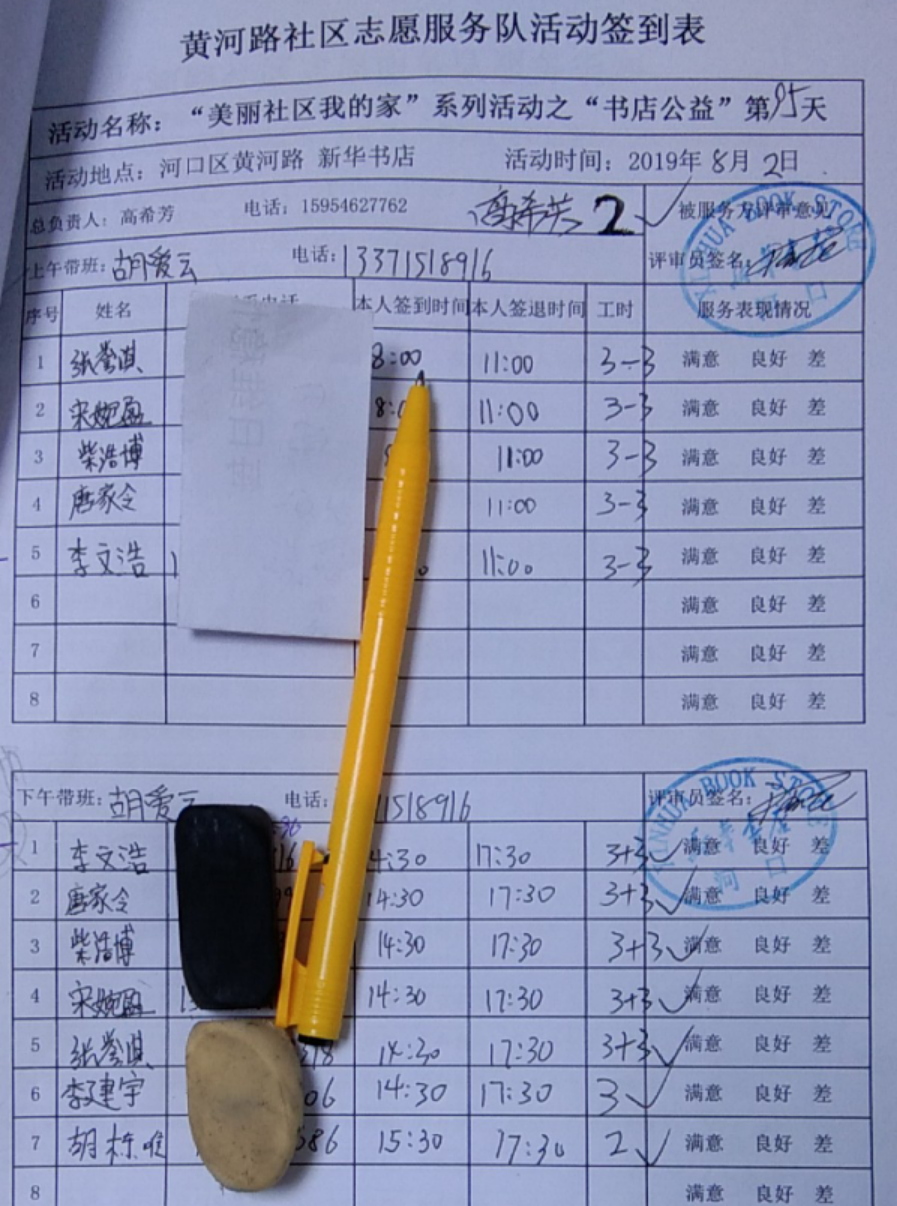 黄河路社区志愿服务队活动签到表
活动名称：“美丽社区我的家”系列活动之“书店公益”第95天
活动地点：河口区黄河路 新华书店 活动时间：2019年8月2日
总负责人：高希芳 电话：15954627762 高希芳 2 被服务方评审意见
上午带班：胡爱云 电话：13371518916 评审员签名：
XINHUA BOOK STORE
河口
序号 姓名 电话 本人签到时间 本人签退时间 工时 服务表现情况
1 张誉淇 8:00 11:00 3-3 满意 良好 差
2 宋婉盈 8:0 11:00 3-3 满意 良好 差
3 柴浩博 11:00 3-3 满意 良好 差
4 唐家令 11:00 3-3 满意 良好 差
5 李文浩 11:00 3-3 满意 良好 差
6 满意 良好 差
7 满意 良好 差
8 满意 良好 差
下午带班：胡爱云 电话： 1518916 评审员签名：
XINHUA BOOK STORE
新华书店
河口
1 李文浩 16 4:30 17:30 3+3 满意 良好 差
2 唐家令 14:30 17:30 3+3 满意 良好 差
3 柴浩博 14:30 17:30 3+3 满意 良好 差
4 宋婉盈 14:30 17:30 3+3 满意 良好 差
5 张誉淇 14:30 17:30 3+3 满意 良好 差
6 李建宇 06 14:30 17:30 3 满意 良好 差
7 胡栋唯 586 15:30 17:30 2 满意 良好 差
8 满意 良好 差